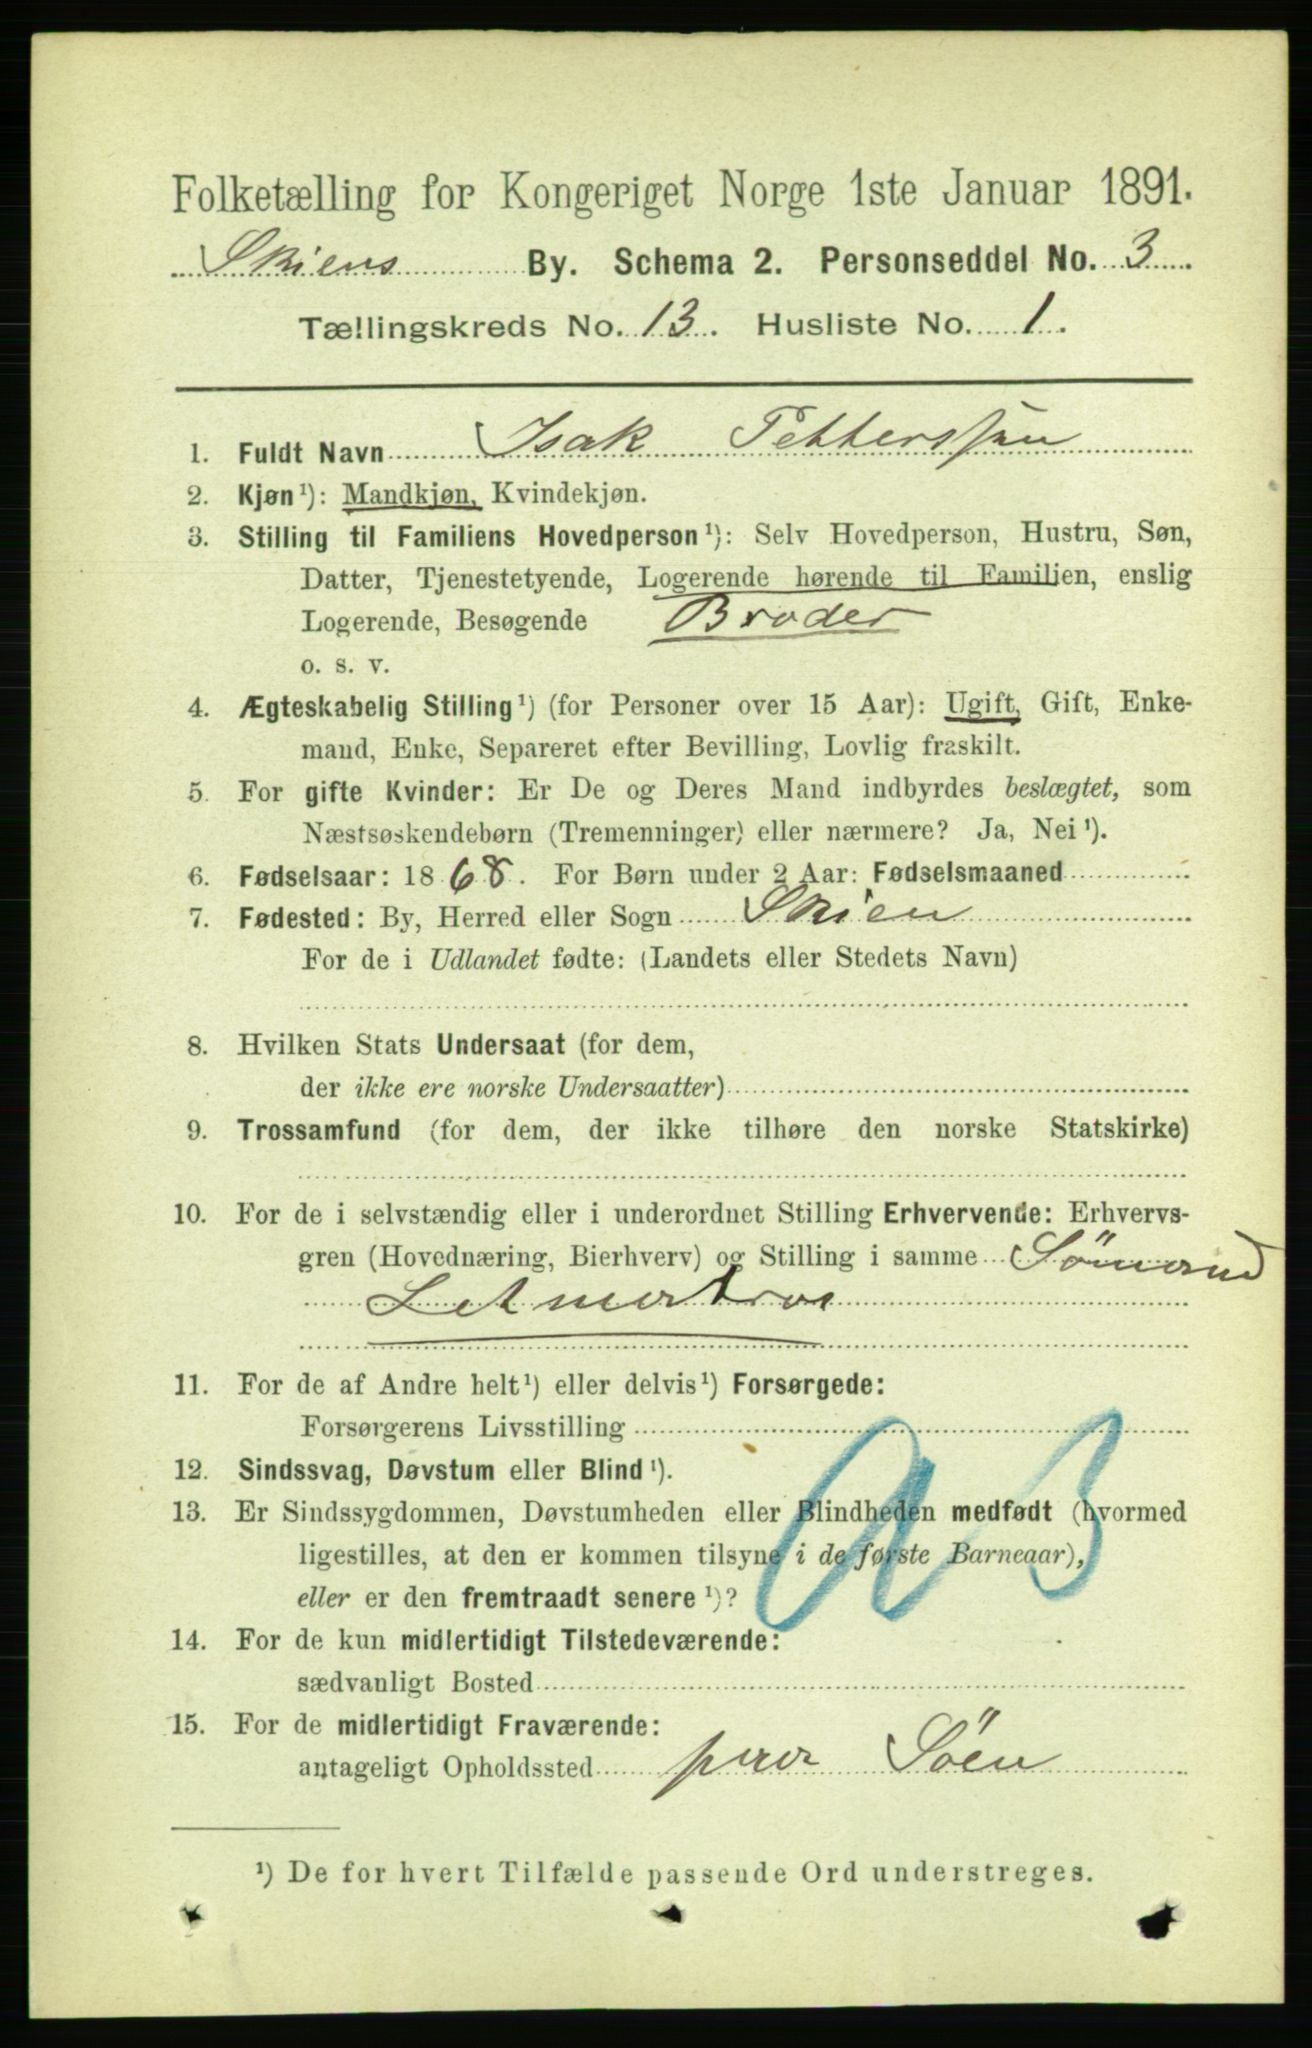 Folketælling for Kongeriget Norge 1ste Januar 1891.
Skiens By. Schema 2. Personseddel No. 3
Tællingskreds No. 13. Husliste No. 1.
1. Fuldt Navn Isak Petterssøn
2. Kjøn¹): Mandkjøn, Kvindekjøn.
3. Stilling til Familiens Hovedperson¹): Selv Hovedperson, Hustru, Søn,
Datter, Tjenestetyende, Logerende hørende til Familien, enslig
Logerende, Besøgende Broder
o. s. v.
4. Ægteskabelig Stilling¹) (for Personer over 15 Aar): Ugift, Gift, Enke-
mand, Enke, Separeret efter Bevilling, Lovlig fraskilt.
5. For gifte Kvinder: Er De og Deres Mand indbyrdes beslægtet, som
Næstsøskendebørn (Tremenninger) eller nærmere? Ja, Nei¹).
6. Fødselsaar: 1868. For Børn under 2 Aar: Fødselsmaaned
7. Fødested: By, Herred eller Sogn Skien
For de i Udlandet fødte: (Landets eller Stedets Navn)
8. Hvilken Stats Undersaat (for dem,
der ikke ere norske Undersaatter)
9. Trossamfund (for dem, der ikke tilhøre den norske Statskirke)
10. For de i selvstændig eller i underordnet Stilling Erhvervende: Erhvervs-
gren (Hovednæring, Bierhverv) og Stilling i samme Sömand
Letmatros
11. For de af Andre helt¹) eller delvis¹) Forsørgede:
Forsørgerens Livsstilling
12. Sindssvag, Døvstum eller Blind¹).
13. Er Sindssygdommen, Døvstumheden eller Blindheden medfødt (hvormed
ligestilles, at den er kommen tilsyne i de første Barneaar),
eller er den fremtraadt senere¹)?
14. For de kun midlertidigt Tilstedeværende:
sædvanligt Bosted
15. For de midlertidigt Fraværende:
antageligt Opholdssted paa Söen
¹) De for hvert Tilfælde passende Ord understreges.